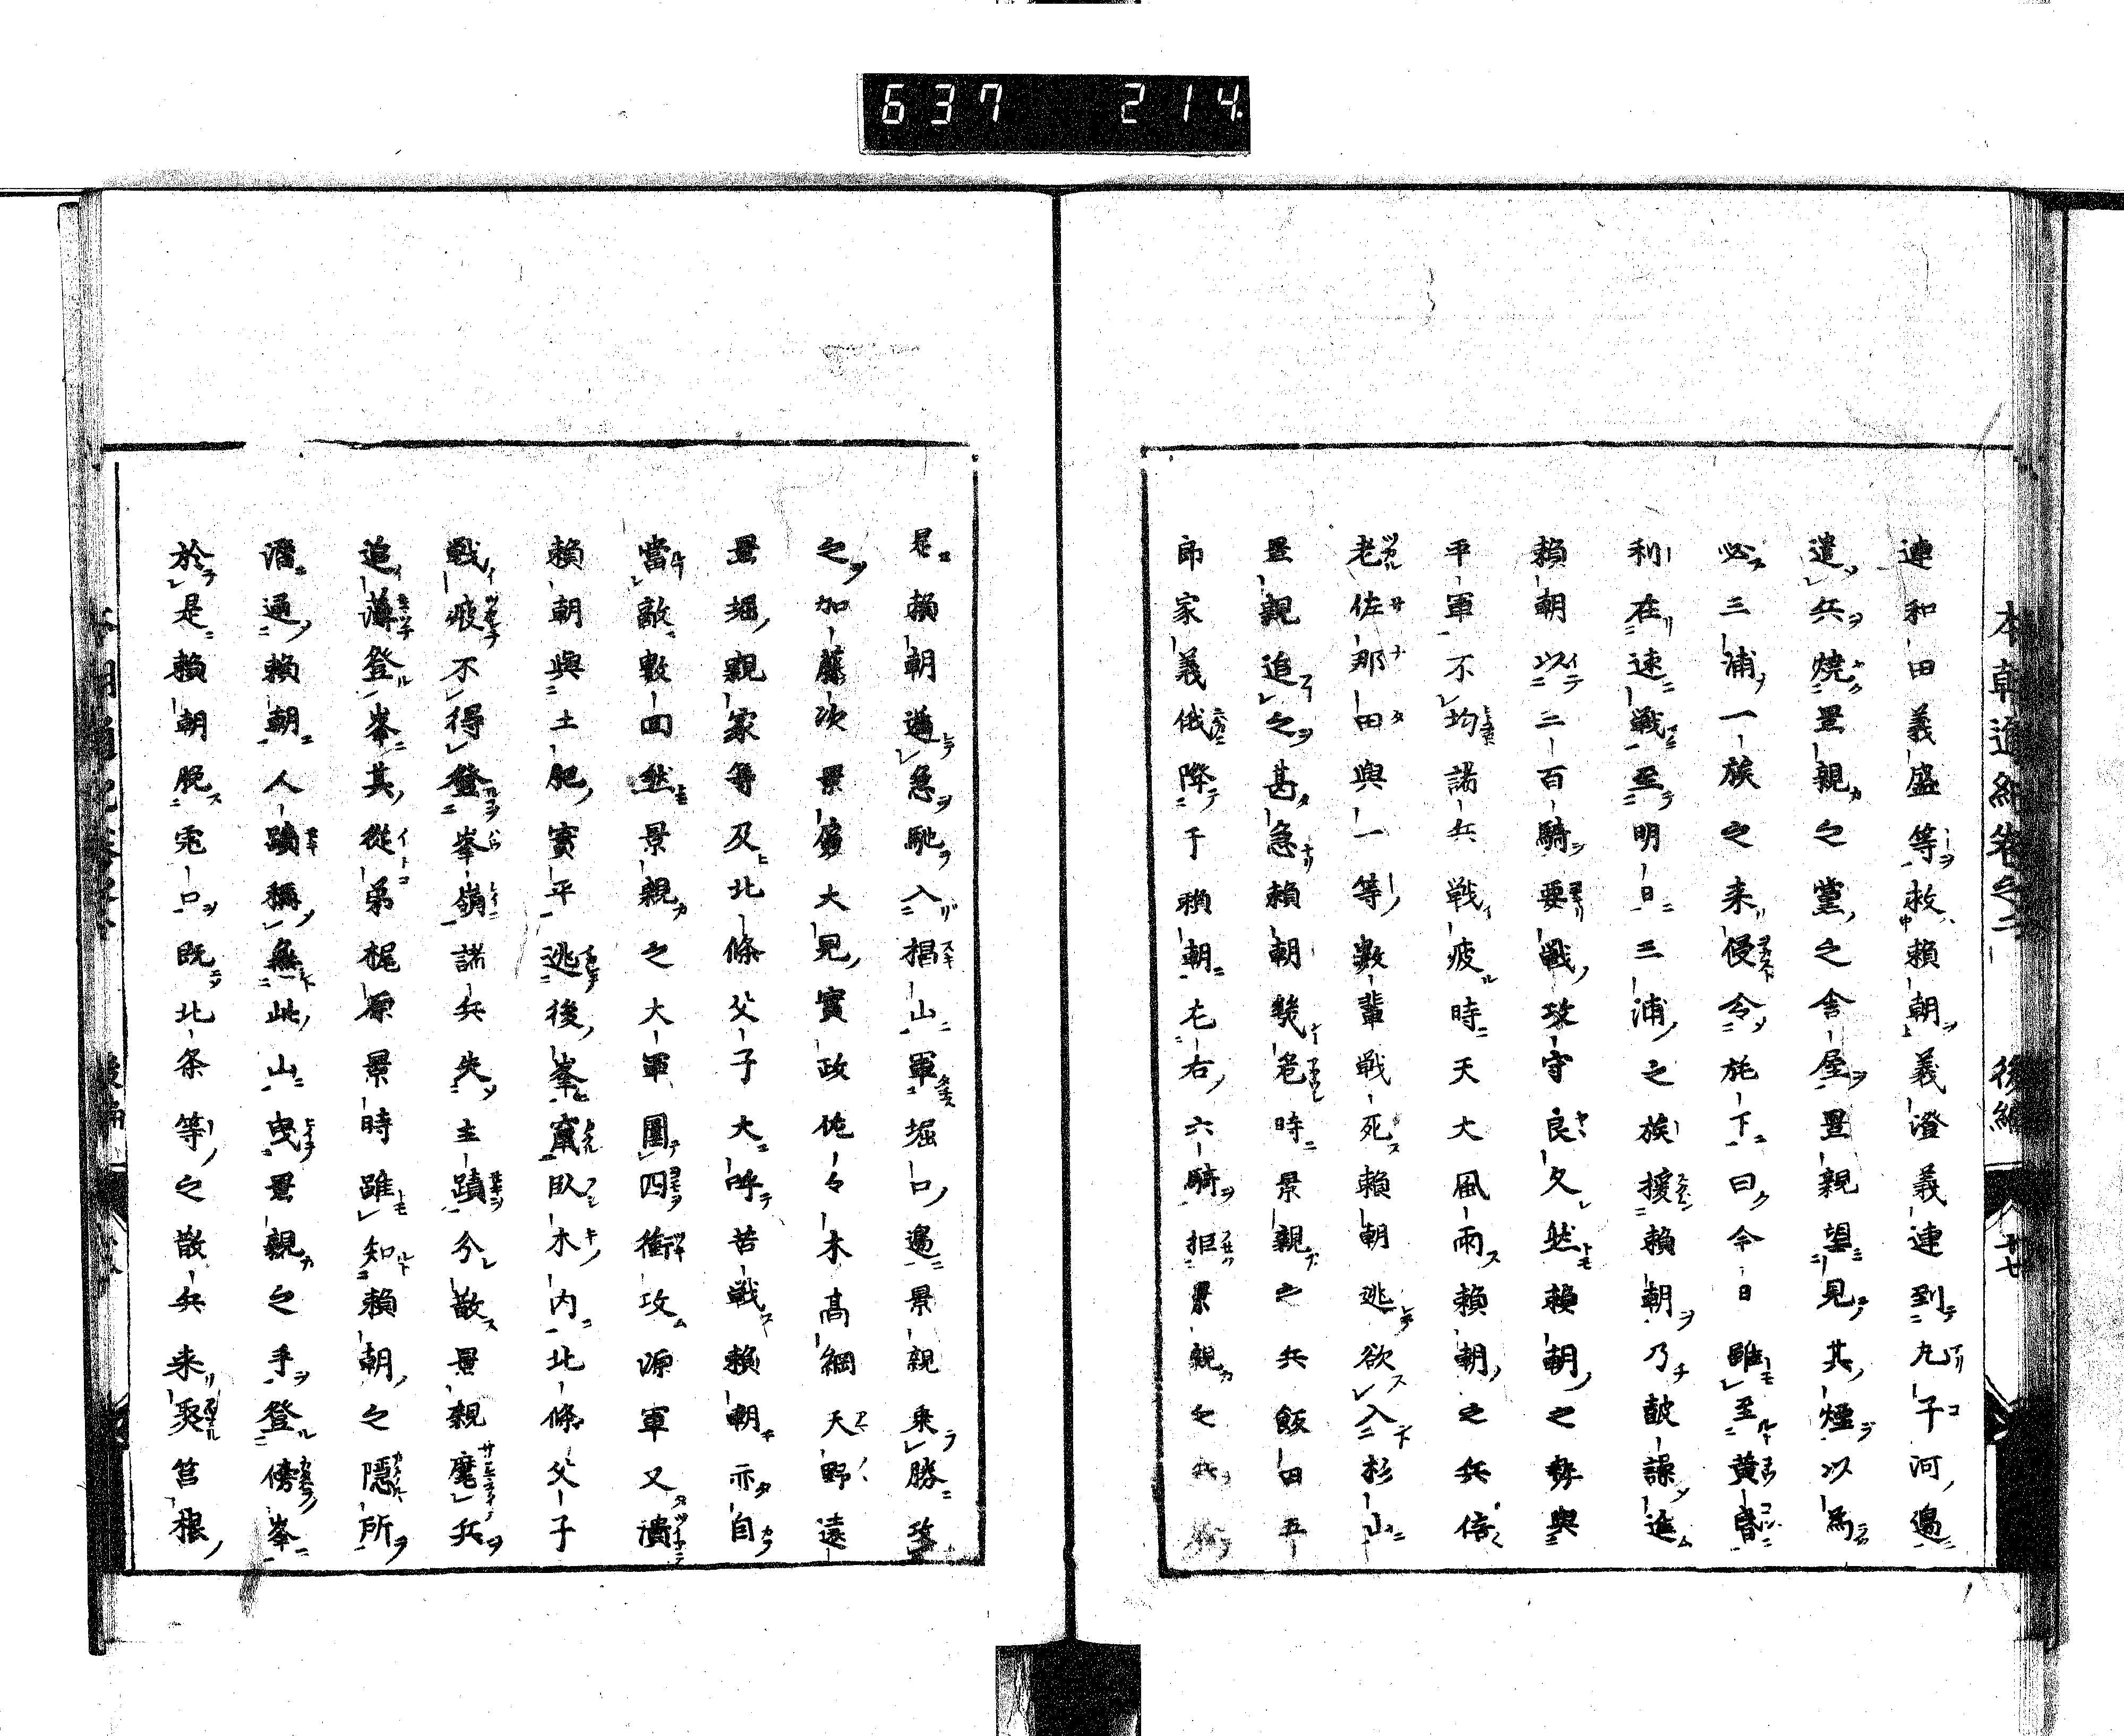 637 214
本朝通紀卷之二 後編 十七
連和田義盛等救賴朝義澄義連到九子河邊
遣兵燒景親之黨之舍屋景親望見其煙以爲
必三浦一族之来侵令旄下曰今日雖至黃昏
利在速戰至明日三浦之族援賴朝乃鼓譟進
賴朝以三百騎要戰攻守良久然賴朝之勢與
平軍不均諸兵戰疲時天大風雨賴朝之兵倍
老佐那田與一等數輩戰死賴朝逃欲入杉山
景親追之甚急賴朝幾危時景親之兵飯田五
郎家義俄降于賴朝左右六騎拒景親之兵
是賴朝遁急馳入椙山軍堀口邊景親乗勝攻
之加藤次景廉大見實政佐々木高綱天野遠
景堀親家等及北條父子大呼苦戰賴朝亦自
當敵數回然景親之大軍圍四衝攻源軍又潰
賴朝與土肥實平逃後峯竄臥木内北條父子
戰疲不得登峯嶺諸兵失主蹟分散景親麾兵
追薄登峯其從弟梶原景時雖知賴朝之隱所
潛通賴朝人蹟稱無此山曳景親之手登傍峯
於是賴朝脱兎口既北条等之散兵来聚筥根